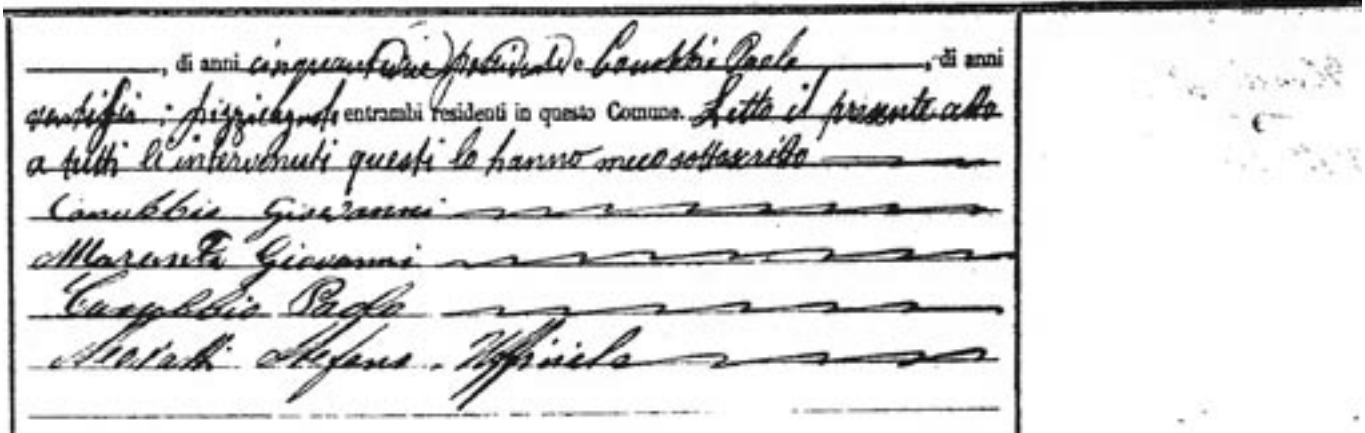 , di anni cinquantadue possidente e Canobbio Paolo, di anni
ventisei, pizzicagnolo entrambi residenti in questo Comune. Letto il presente atto
a tutti li intervenuti questi lo hanno meco sottoscritto
Canobbio Giovanni
Giovanni
Canobbio Paolo
Stefano